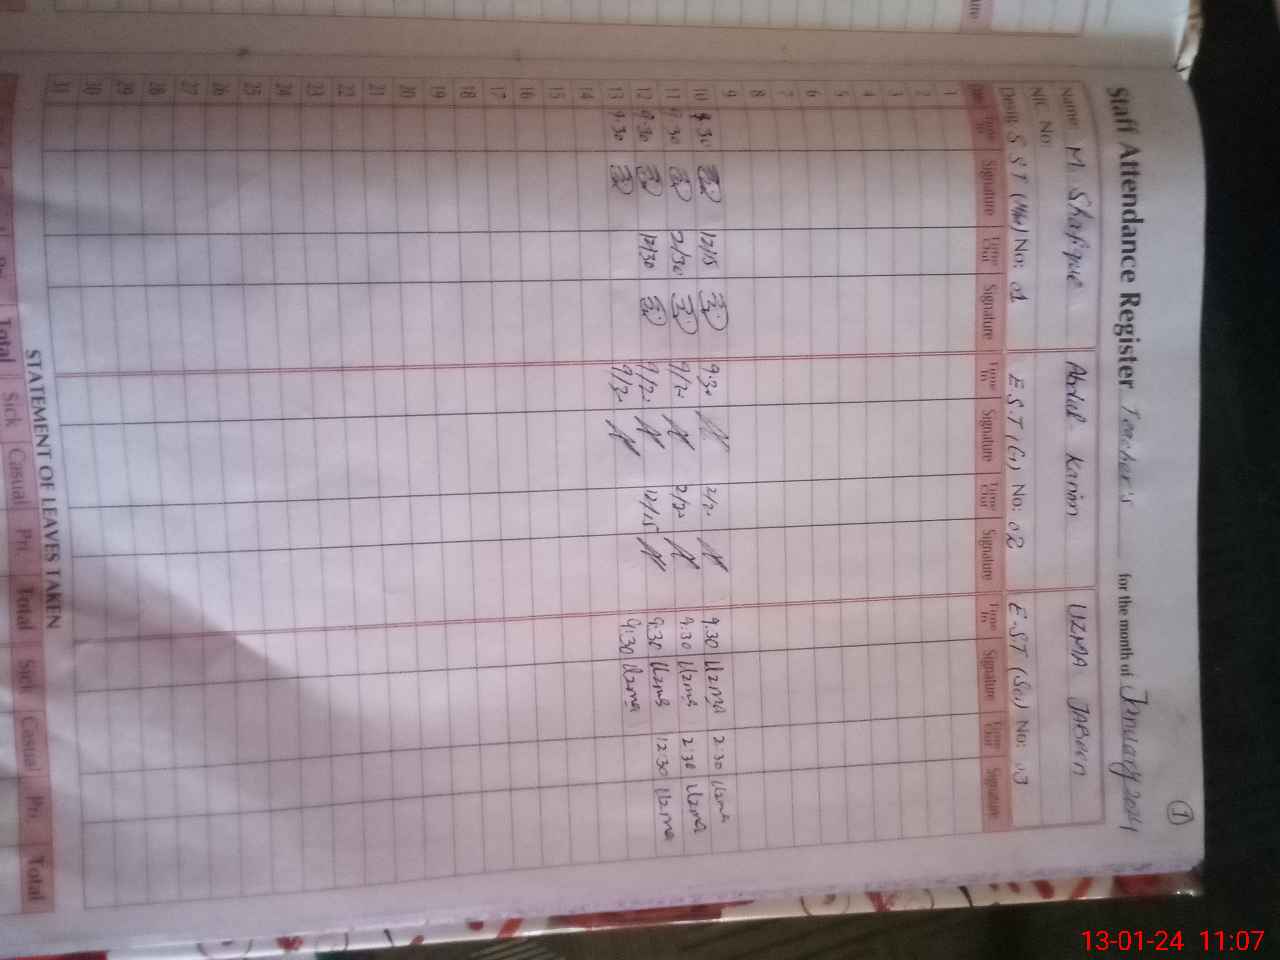 1
Staff Attendance Register Teacher's for the month of January 2024
Name: M. Shafique Abdul Karim UZMA JABeen
NIC No:
Desig: S S T No: 01 E.S.T (G) No: 02 E.S.T (Sci) No: 03
Time In Signature Time Out Signature Time In Signature Time Out Signature Time In Signature Time Out Signature
1
2
3
4
5
6
7
8
9
10 9.30 12/15 9.30 9.30 Uzma 2:30 Uzma
11 9.30 2/30 9.30 Uzma 2:30 Uzma
12 9.30 12/30 12/15 9.30 Uzma 12:30 Uzma
13 9.30 9:30 Uzma
14
15
16
17
18
19
20
21
22
23
24
25
26
27
28
29
30
31
STATEMENT OF LEAVES TAKEN
Total Sick Casual Pri. Total Sick Casual Pri. Total
13-01-24 11:07